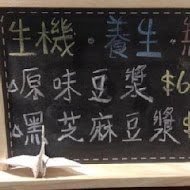 生機·養生·五
△原味豆漿$6
△黑芝麻豆漿$